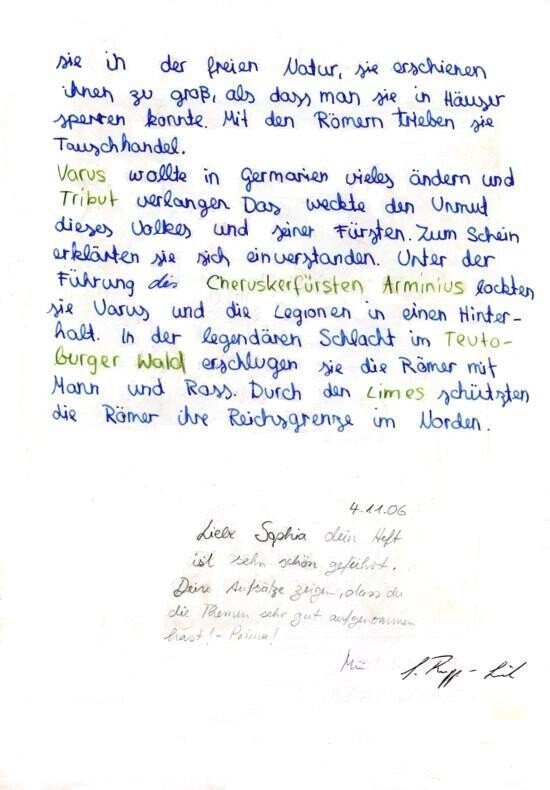 sie in der freien Natur, sie erschienen
ihnen zu groß, als dass man sie in Häuser
sperren konnte. Mit den Römern trieben sie
Tauschhandel.
Varus wollte in Germanien vieles ändern und
Tribut verlangen. Das weckte den Unmut
dieses Volkes und seiner Fürsten. Zum Schein
erklärten sie sich einverstanden. Unter der
Führung des Cheruskerfürsten Arminius lockten
sie Varus und die Legionen in einen Hinter-
halt. In der legendären Schlacht im Teuto-
burger Wald erschlugen sie die Römer mit
Mann und Ross. Durch den Limes schützten
die Römer ihre Reichsgrenze im Norden.
4.11.06
Liebe Sophia dein Heft
ist sehr schön geführt.
Deine Aufsätze zeigen, dass du
die Themen sehr gut aufgenommen
hast! - Prima!